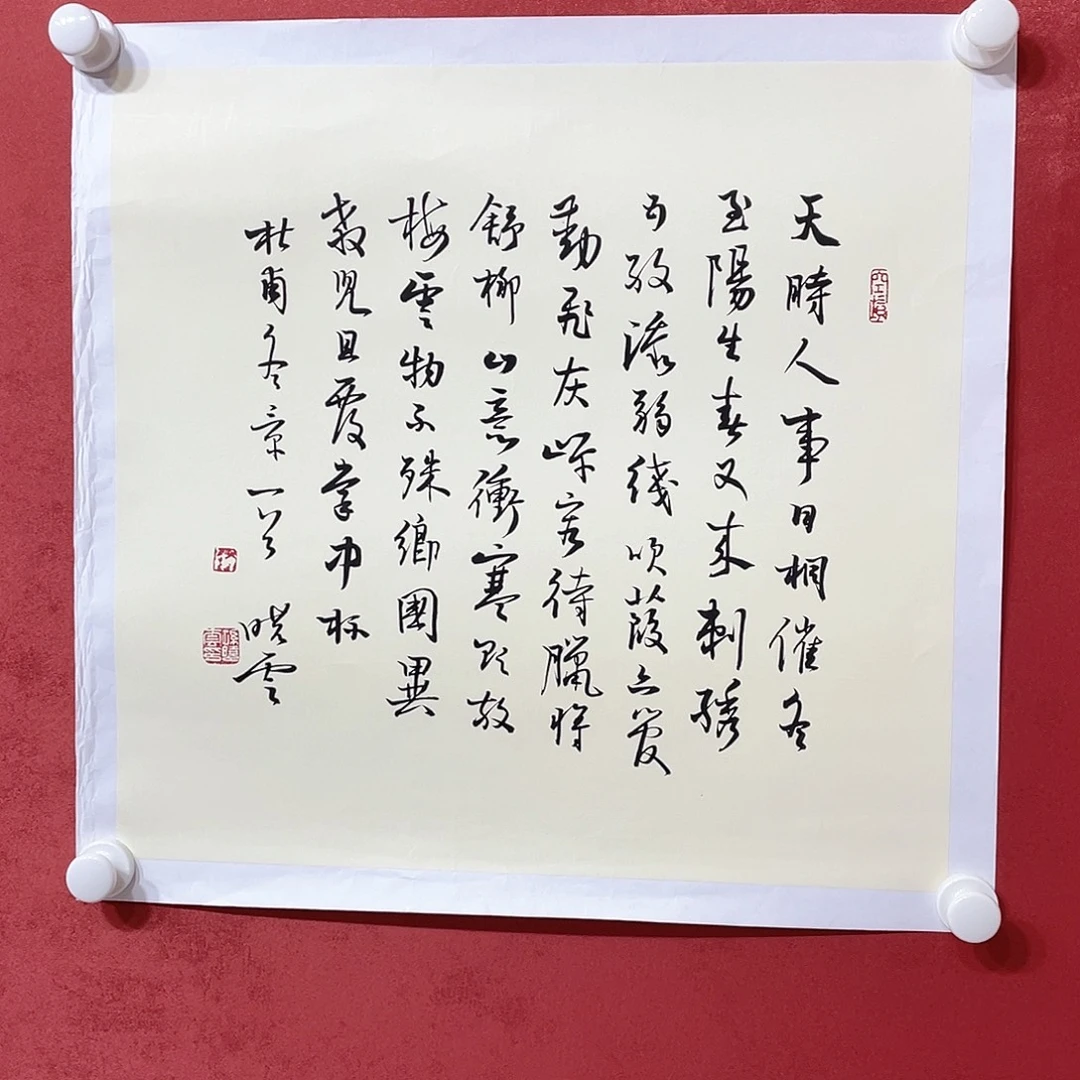 天時人事日相催冬
至陽生春又来刺綉
五紋添弱綫吹葭六管
動飛灰岸容待臘將
舒柳山意衝寒欲放
梅雲物不殊鄉國異
教兒且覆掌中杯
杜甫冬景一首 曉雲